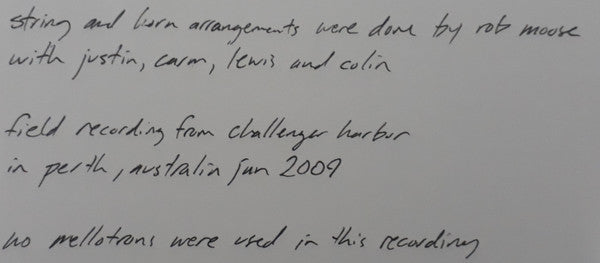 string and horn arrangements were done by rob moose
with justin, carm, lewis and colin
field recording from challenger harbor
in perth, australia jan 2009
no mellotrons were used in this recording